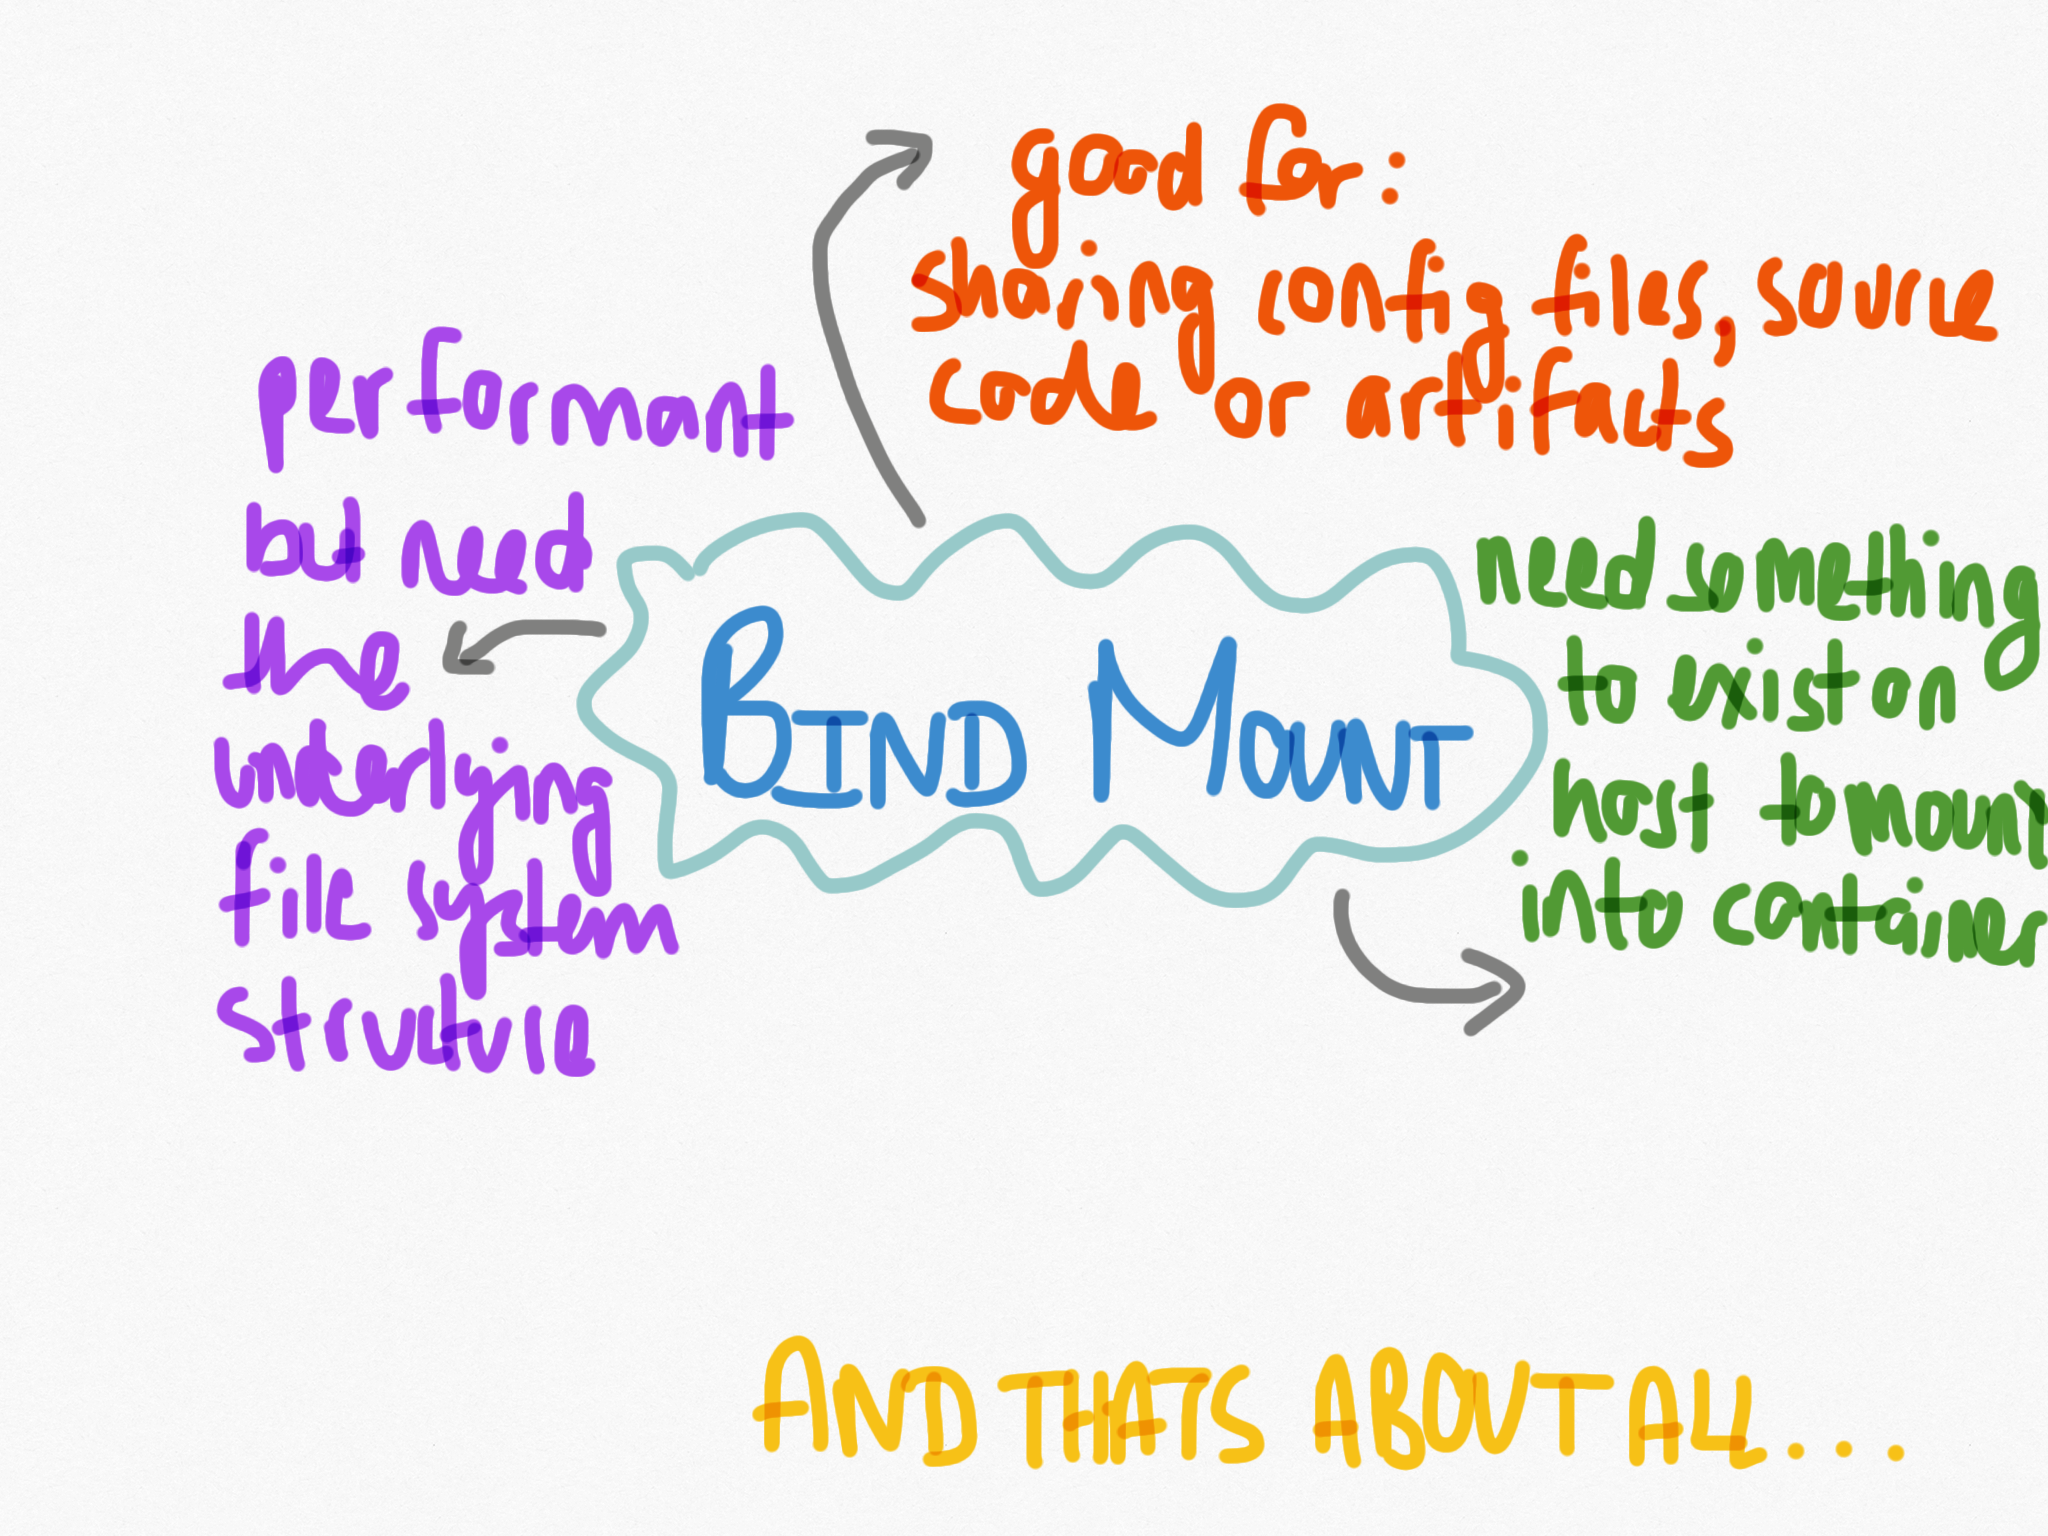 good for:
sharing config files, source
code or artifacts
performant
but need
the
underlying
file system
structure
BIND MOUNT
need something
to exist on
host to mount
into container
AND THATS ABOUT ALL...